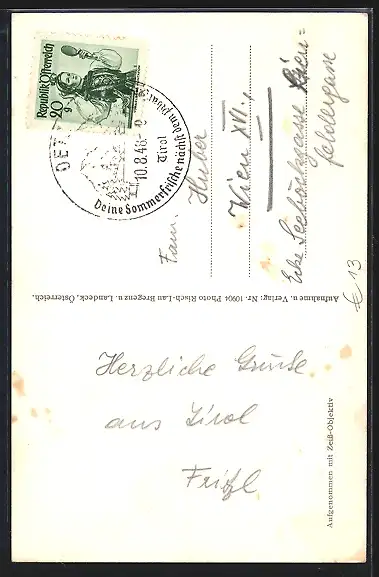 Republik Österreich
20
g
OETZ
10.8.48
Tirol
Deine Sommerfrische nächst dem
Fam. Huber
Wien XVI.,
Ecke Seeböckgasse Lien-
feldergasse
€ 13
Aufnahme u. Verlag: Nr. 10904 Photo Risch-Lau Bregenz u. Landeck, Österreich.
Herzliche Grüße
aus Tirol
Fritzl
Aufgenommen mit Zeiß-Objektiv